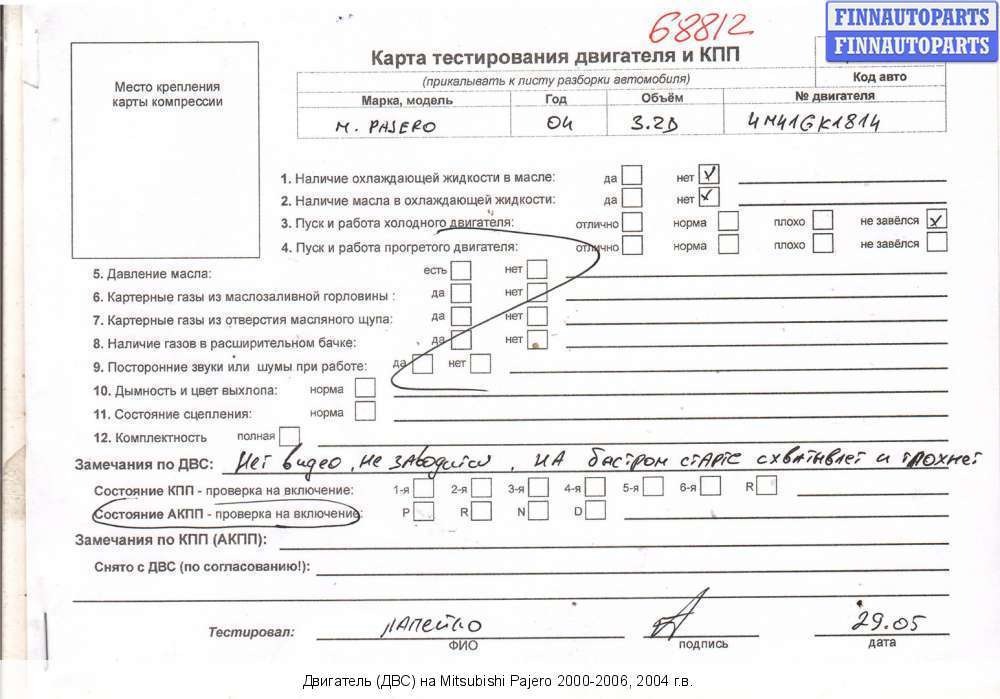 68812
FINNAUTOPARTS
FINNAUTOPARTS
Карта тестирования двигателя и КПП
(прикалывать к листу разборки автомобиля) Код авто
Место крепления
карты компрессии
Марка, модель Год Объём № двигателя
M. PAJERO 04 3.2D 4M41GK1814
1. Наличие охлаждающей жидкости в масле: да нет
2. Наличие масла в охлаждающей жидкости: да нет
3. Пуск и работа холодного двигателя: отлично норма плохо не завёлся
4. Пуск и работа прогретого двигателя: отлично норма плохо не завёлся
5. Давление масла: есть нет
6. Картерные газы из маслозаливной горловины : да нет
7. Картерные газы из отверстия масляного щупа: да нет
8. Наличие газов в расширительном бачке: да нет
9. Посторонние звуки или шумы при работе: да нет
10. Дымность и цвет выхлопа: норма
11. Состояние сцепления: норма
12. Комплектность полная
Замечания по ДВС: Нет видео, не заводится, на быстром старте схватывает и глохнет
Состояние КПП - проверка на включение: 1-я 2-я 3-я 4-я 5-я 6-я R
Состояние АКПП - проверка на включение: P R N D
Замечания по КПП (АКПП):
Снято с ДВС (по согласованию!):
Тестировал: Лапейко 29.05
ФИО подпись дата
Двигатель (ДВС) на Mitsubishi Pajero 2000-2006, 2004 г.в.